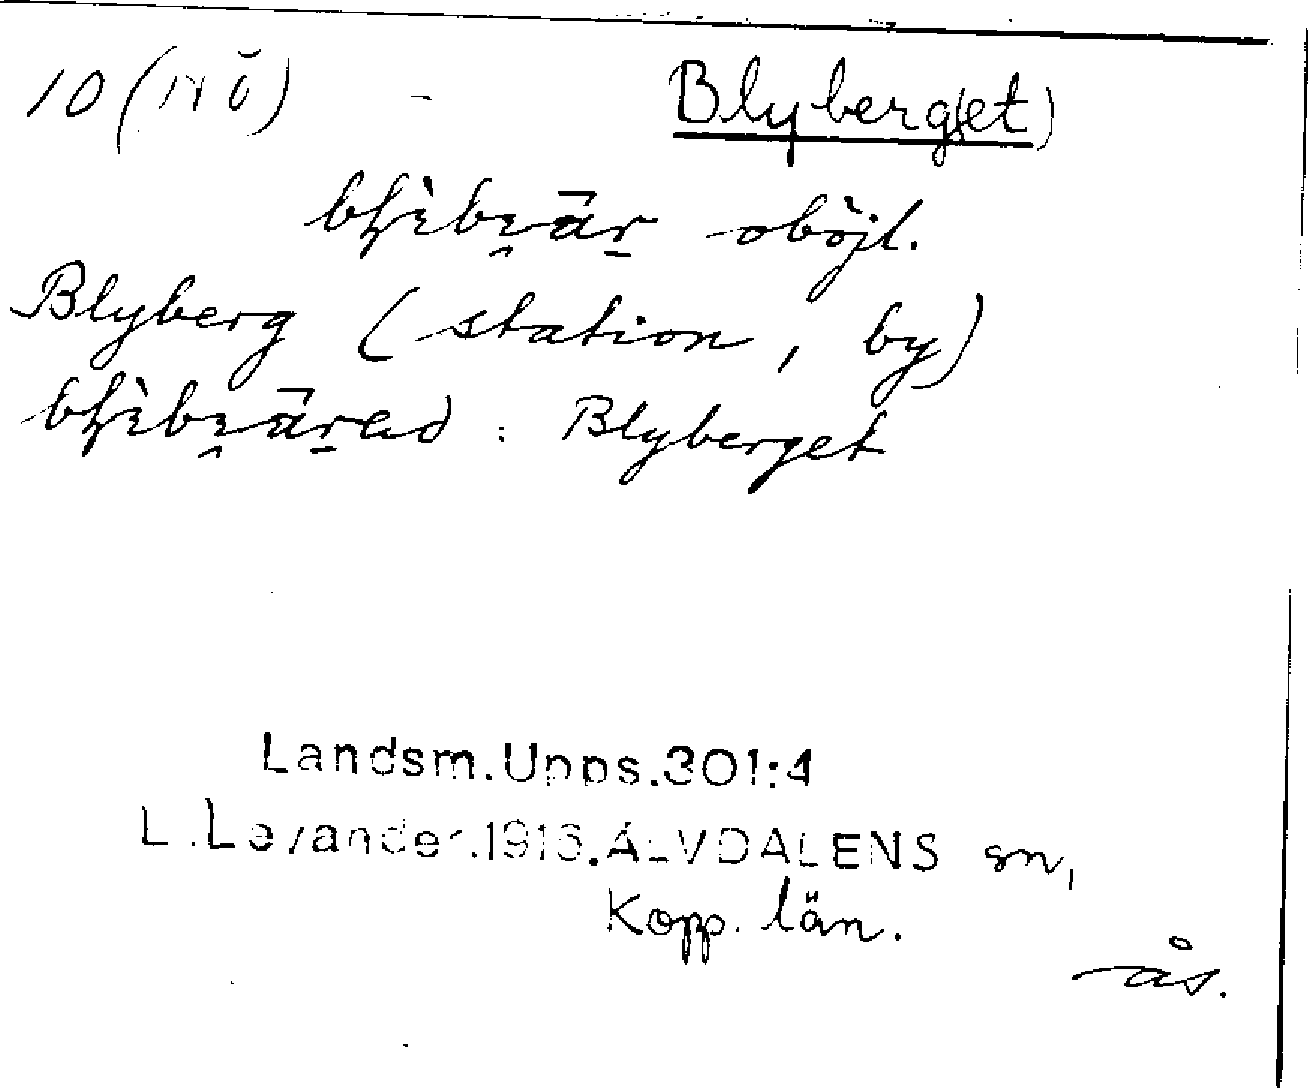 10 (NÖ) - Blyberg(et)
oböjl.
Blyberg (station, by)
: Blyberget
Landsm.Upps.301:4
L.Levander.1916.ÄLVDALENS sn,
Kopp. län.
ås.